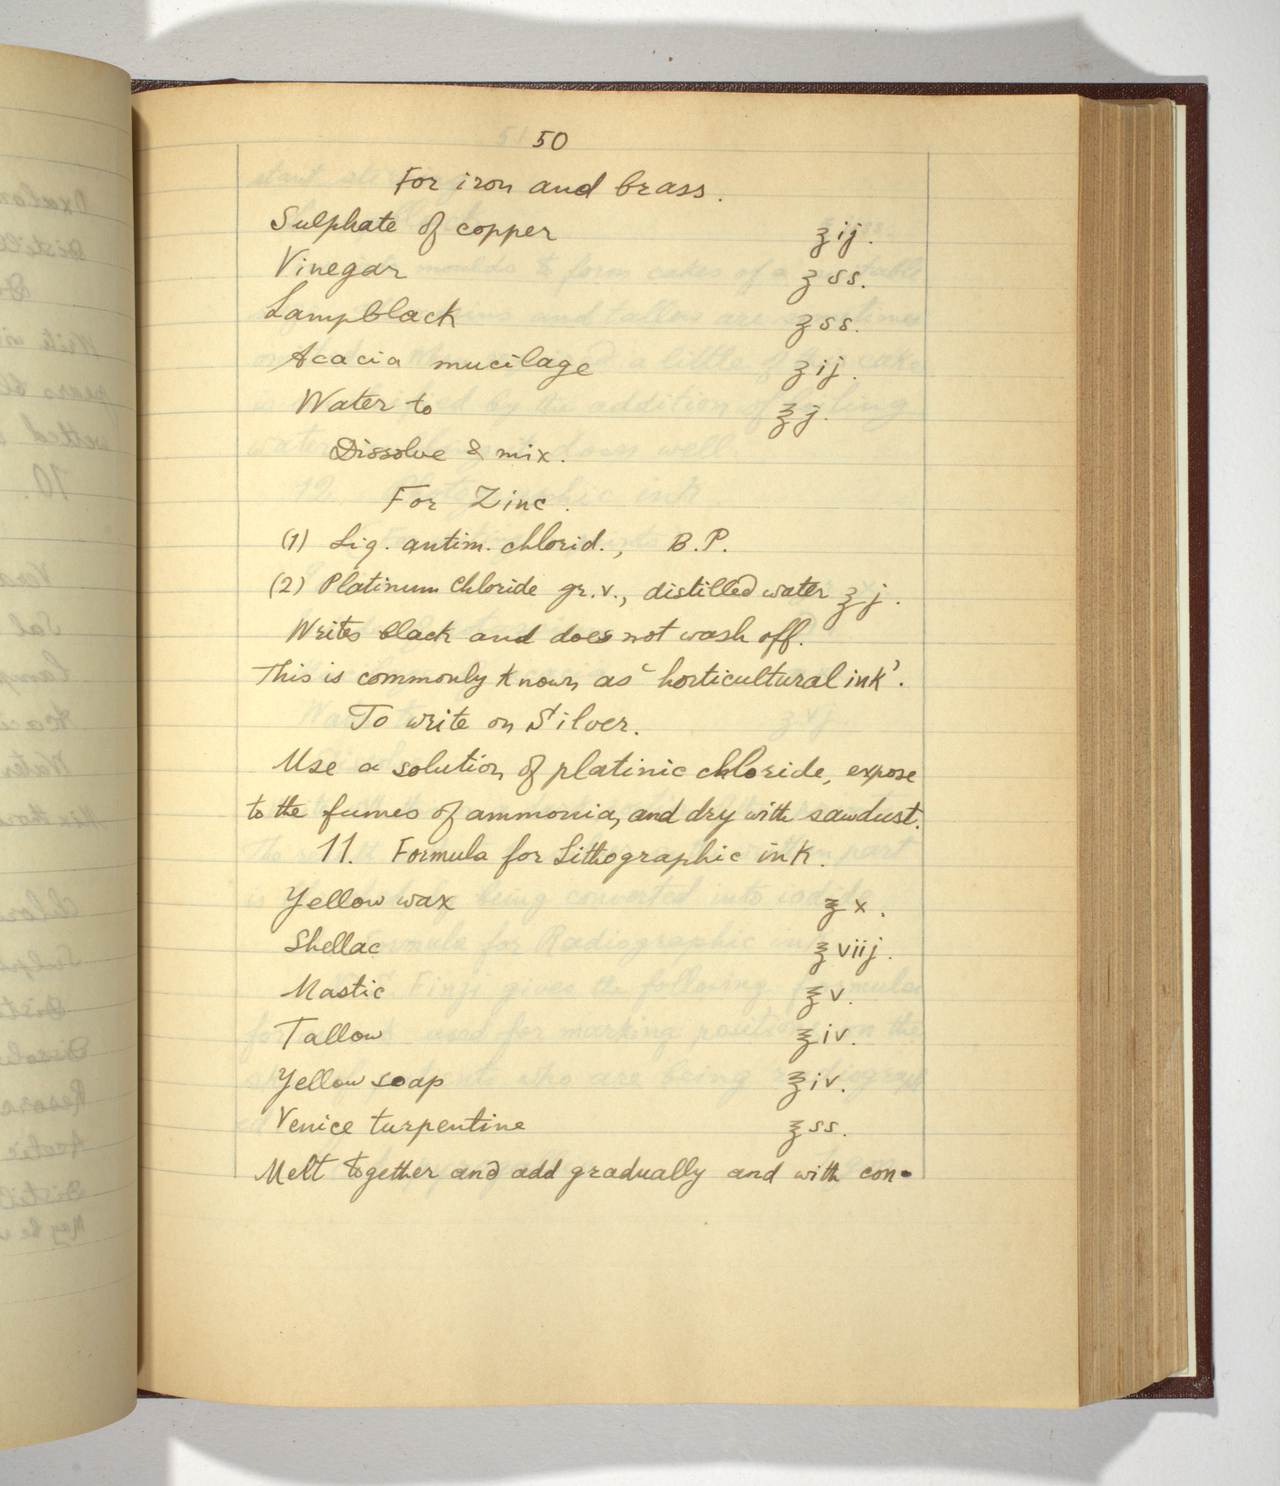 50
For iron and brass.
Sulphate of copper ʒij.
Vinegar ʒss.
Lampblack ʒss.
Acacia mucilage ʒij.
Water to ℥j.
Dissolve & mix.
For Zinc.
(1) Liq. antim. chlorid., B.P.
(2) Platinum Chloride gr.v., distilled water ʒj.
Writes black and does not wash off.
This is commonly known as 'horticultural ink'.
To write on Silver.
Use a solution of platinic chloride, expose
to the fumes of ammonia, and dry with sawdust.
11. Formula for Lithographic ink.
Yellow wax ℥x.
Shellac ℥viij.
Mastic ℥v.
Tallow ℥iv.
Yellow soap ℥iv.
Venice turpentine ℥ss.
Melt together and add gradually and with con-